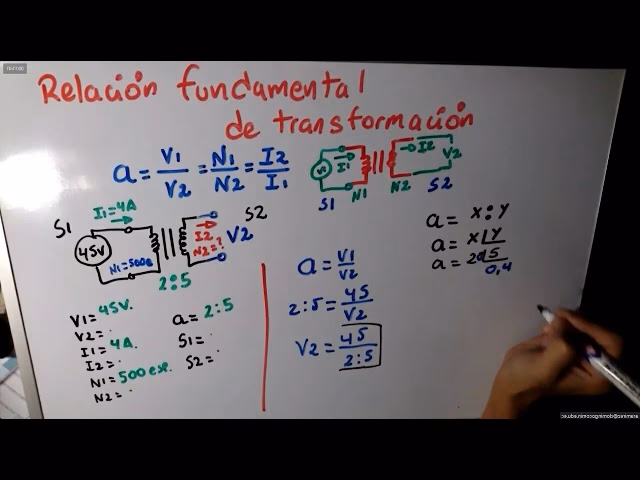 Relación fundamental
de transformación
a = V1/V2 = N1/N2 = I2/I1
I1 I2 V2
S1 N1 N2 S2
I1=4A
S1 S2
45V N1=500e I2 N2=? V2
2:5
V1= 45V.
V2=.
I1= 4A.
I2=.
N1= 500 esp.
N2=.
a= 2:5
S1=.
S2=.
a = V1/V2
2:5 = 45/V2
V2 = 45/2:5
a= x:y
a= x|y
a= 20|5
0,4